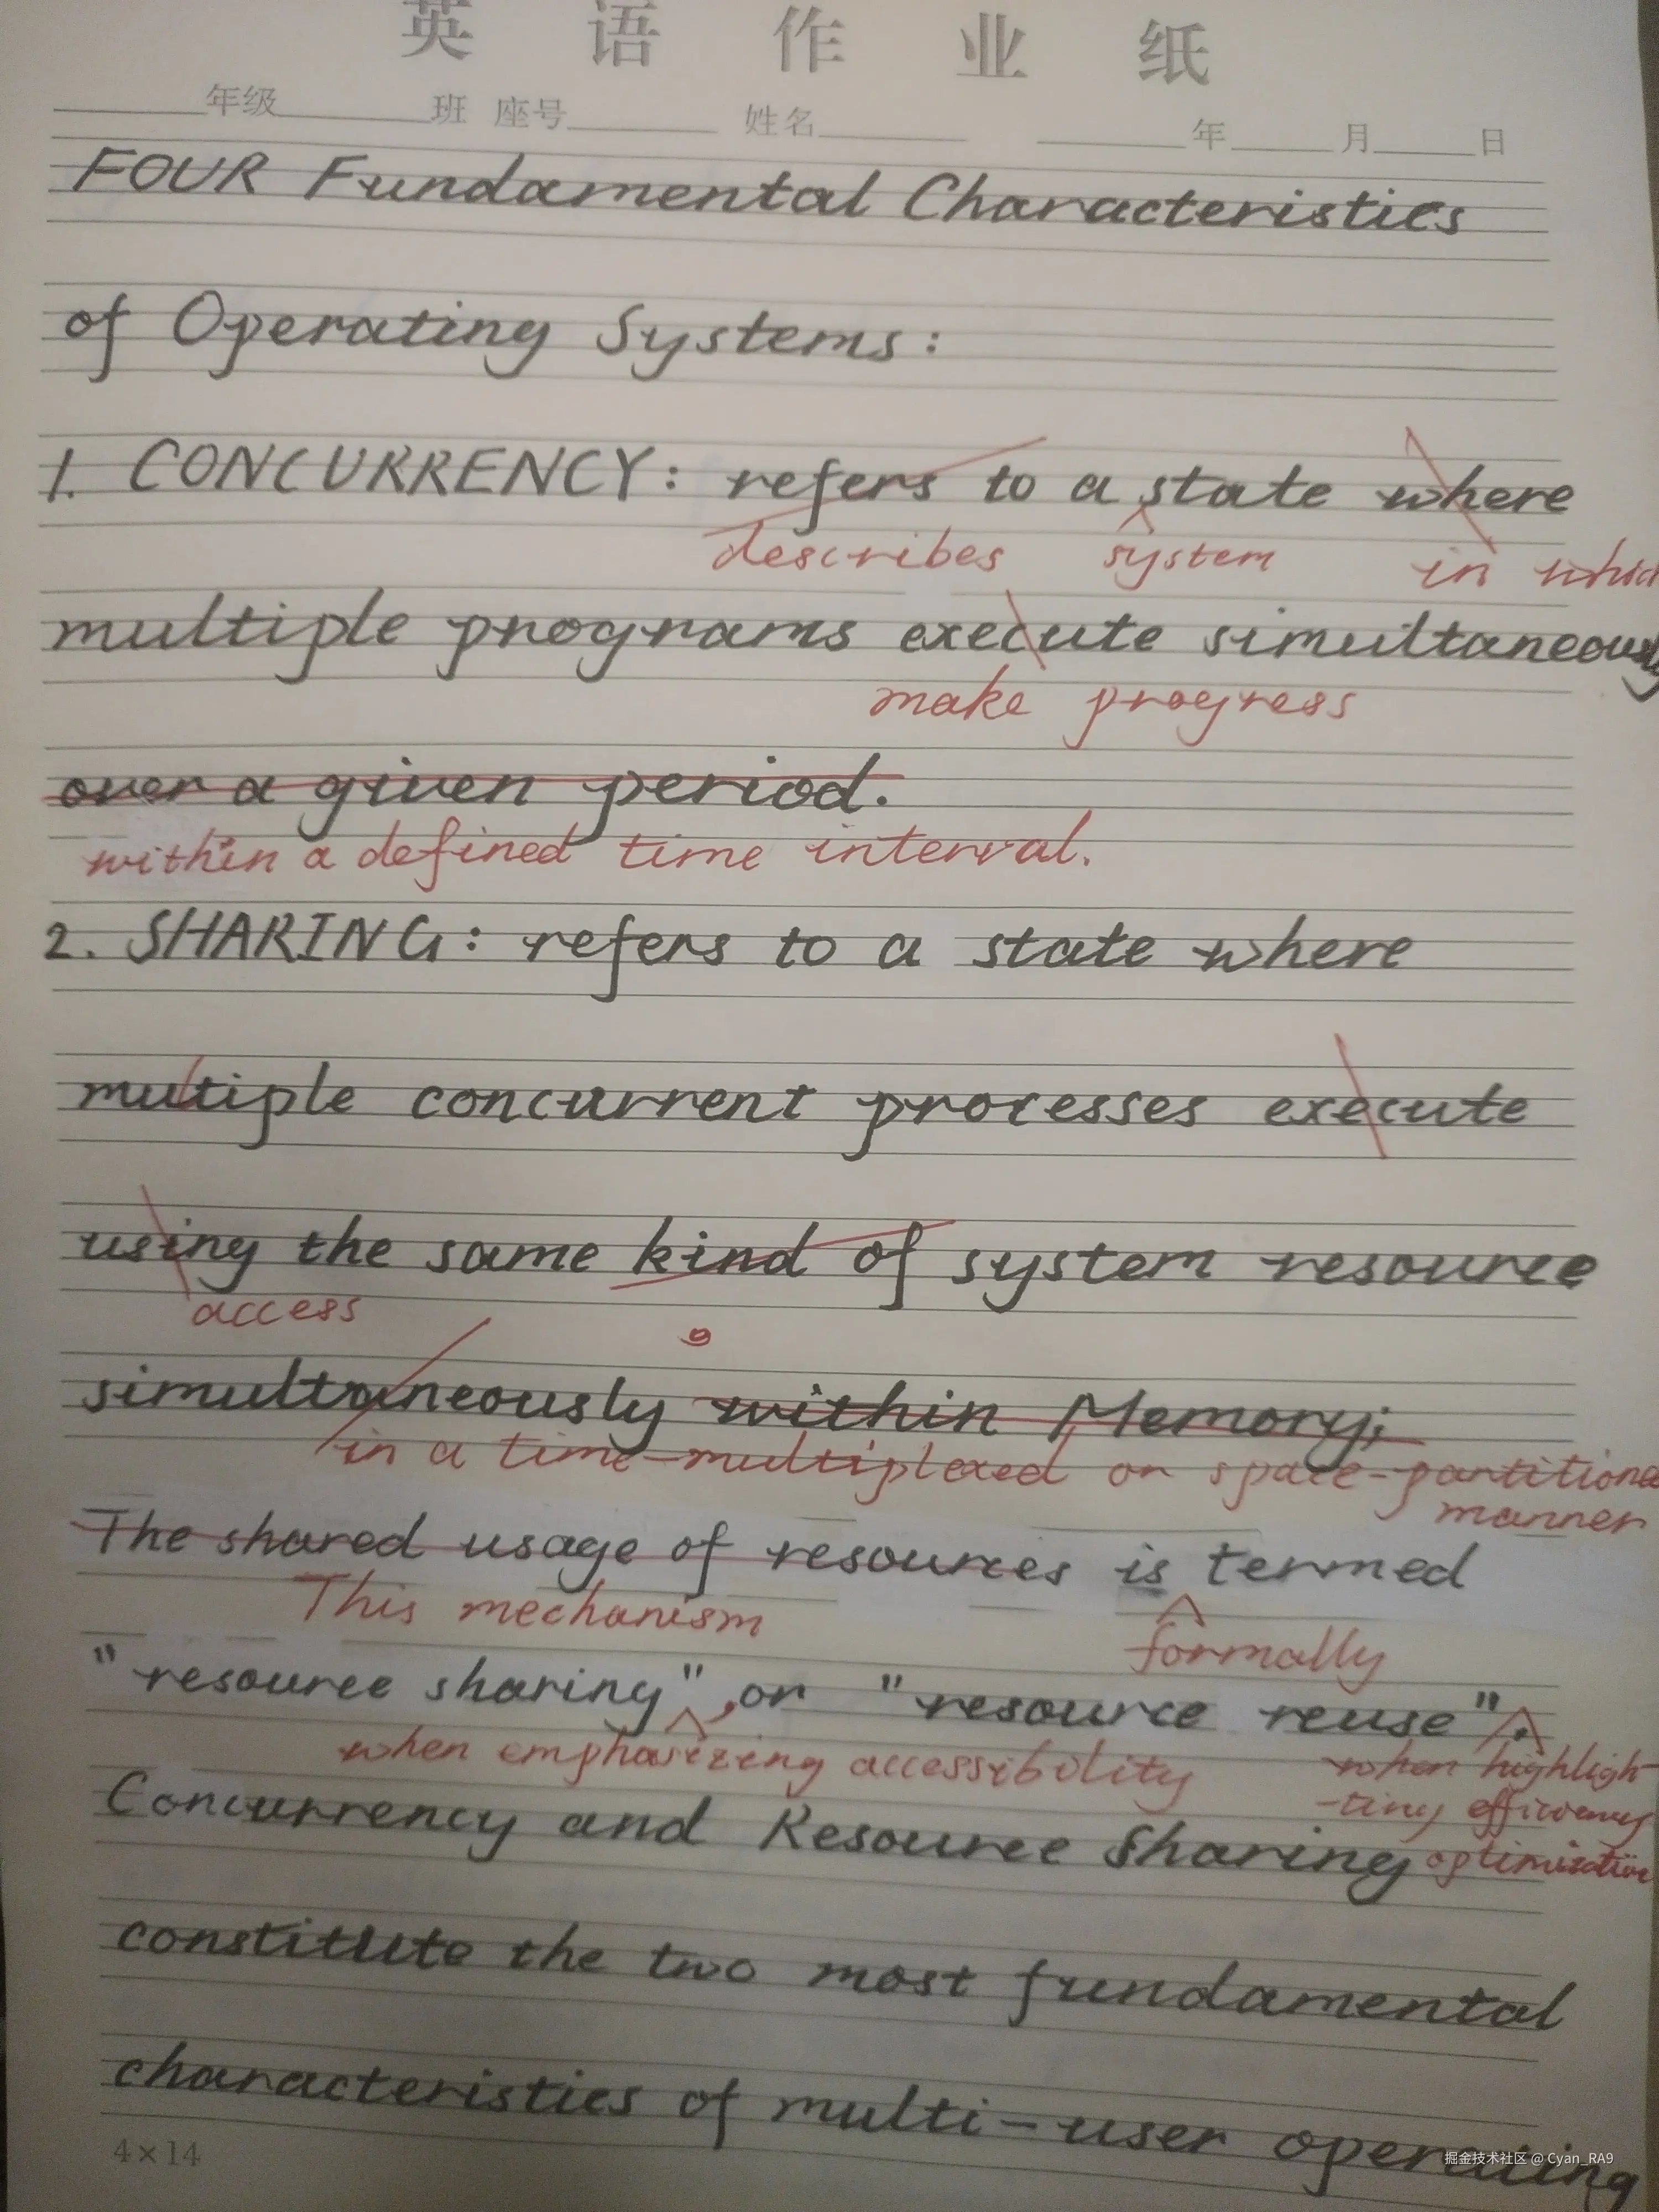 英语作业纸
年级 班 座号 姓名 年 月 日
FOUR Fundamental Characteristics
of Operating Systems:
1. CONCURRENCY: refers to a state where
describes system in which
multiple programs execute simultaneously
make progress
over a given period.
within a defined time interval.
2. SHARING: refers to a state where
multiple concurrent processes execute
using the same kind of system resource
access
simultaneously within Memory;
in a time-multiplexed or space-partitioned
manner
The shared usage of resources is termed
This mechanism formally
"resource sharing", or "resource reuse".
when emphasizing accessibility when highligh-
-ting efficiency
Concurrency and Resource Sharing optimization
constitute the two most fundamental
characteristics of multi-user operating
4×14
掘金技术社区 @ Cyan_RA9